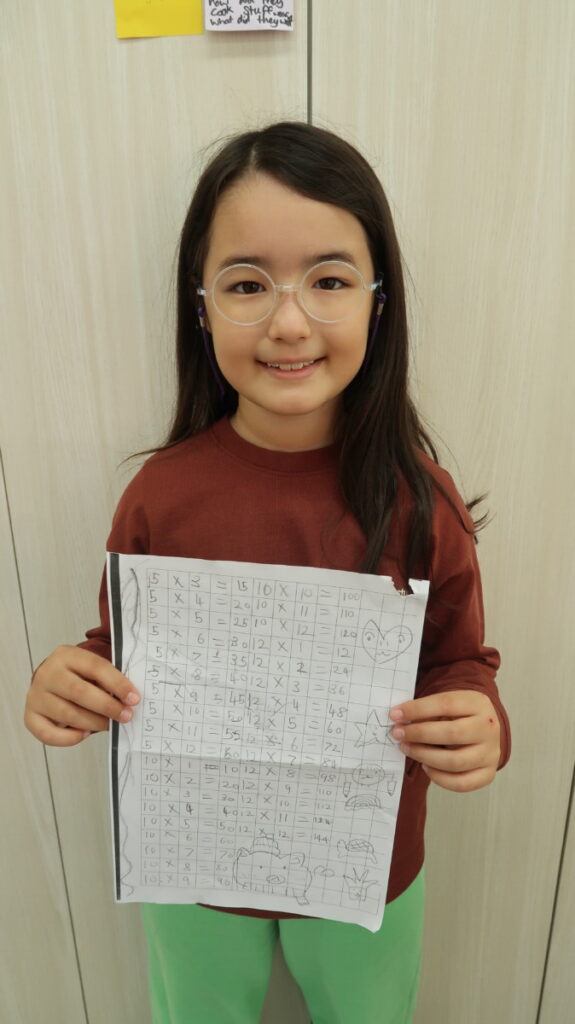 cook stuff
what did they
5 x 3 = 15 10 x 10 = 100
5 x 4 = 20 10 x 11 = 110
5 x 5 = 25 10 x 12 = 120
5 x 6 = 30 12 x 1 = 12
5 x 7 = 35 12 x 2 = 24
5 x 8 = 40 12 x 3 = 36
5 x 9 = 45 12 x 4 = 48
5 x 10 = 50 12 x 5 = 60
5 x 11 = 55 12 x 6 = 72
5 x 12 = 60 12 x 7 = 84
10 x 1 = 10 12 x 8 = 98
10 x 2 = 20 12 x 9 = 110
10 x 3 = 30 12 x 10 = 112
10 x 4 = 40 12 x 11 =
10 x 5 = 50 12 x 12 = 144
10 x 6 = 60
10 x 7 = 70
10 x 8 = 80
10 x 9 = 90